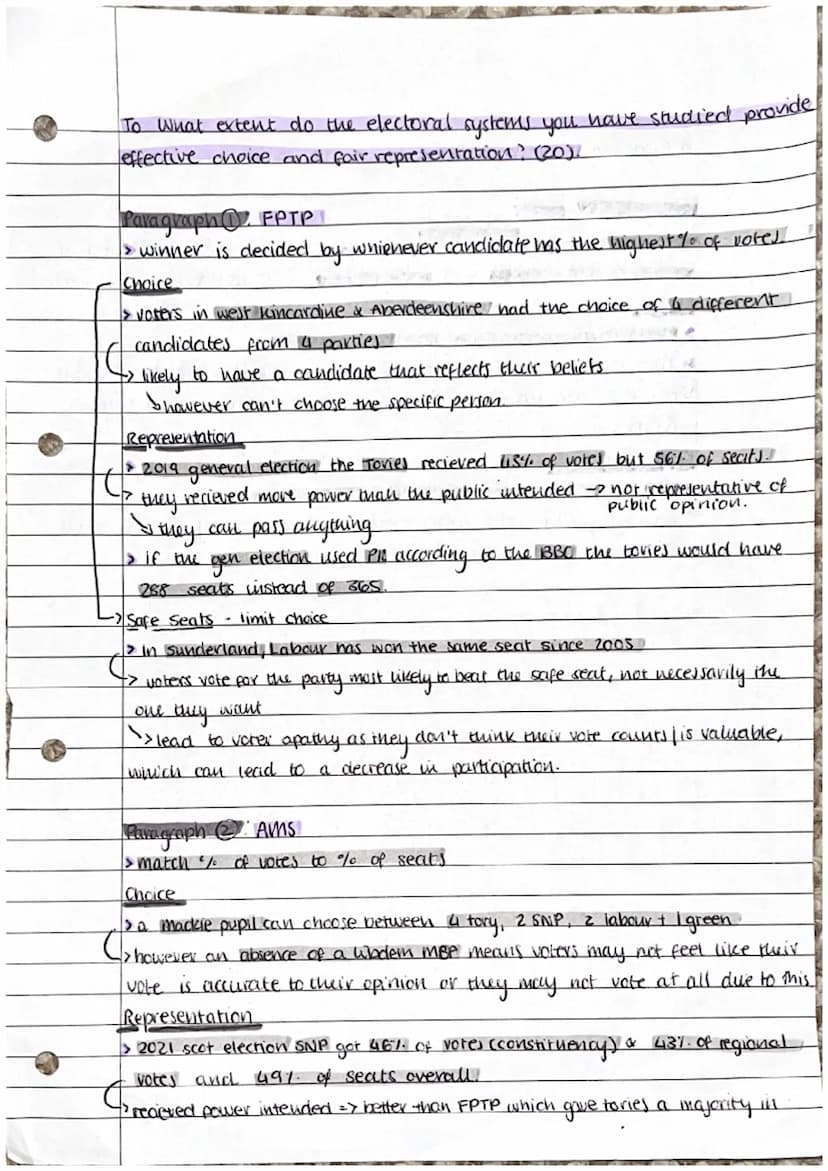 To What extent do the electoral systems you have studied provide
effective choice and fair representation? (20).
Paragraph ①: FPTP
> winner is decided by whichever candidate has the highest % of votes
Choice
> voters in west kincardine & Aberdeenshire had the choice of 4 different
candidates from 4 parties
↳ likely to have a candidate that reflects their beliefs
↘ however can't choose the specific person.
Representation
> 2019 general election the Tories recieved 43% of votes but 56% of seats.
↳ they recieved more power than the public intended → not representative of
public opinion.
↘ they can pass anything
> if the gen election used PR according to the BBC the tories would have
288 seats instead of 365.
→ Safe seats - limit choice
> In Sunderland, Labour has won the same seat since 2005
↳ voters vote for the party most likely to beat the safe seat, not necessarily the
one they want
↘> lead to voter apathy as they don't think their vote counts / is valuable,
which can lead to a decrease in participation.
Paragraph ②: AMS
> match % of votes to % of seats
Choice
> a mackie pupil can choose between 4 tory, 2 SNP, 2 labour + 1 green
↳ however an absence of a libdem MSP means voters may not feel like their
vote is accurate to their opinion or they may not vote at all due to this
Representation
> 2021 scot election SNP got 46% of votes (constituency) & 43% of regional
votes and 49% of seats overall
↳ recieved power intended => better than FPTP which gave tories a majority in